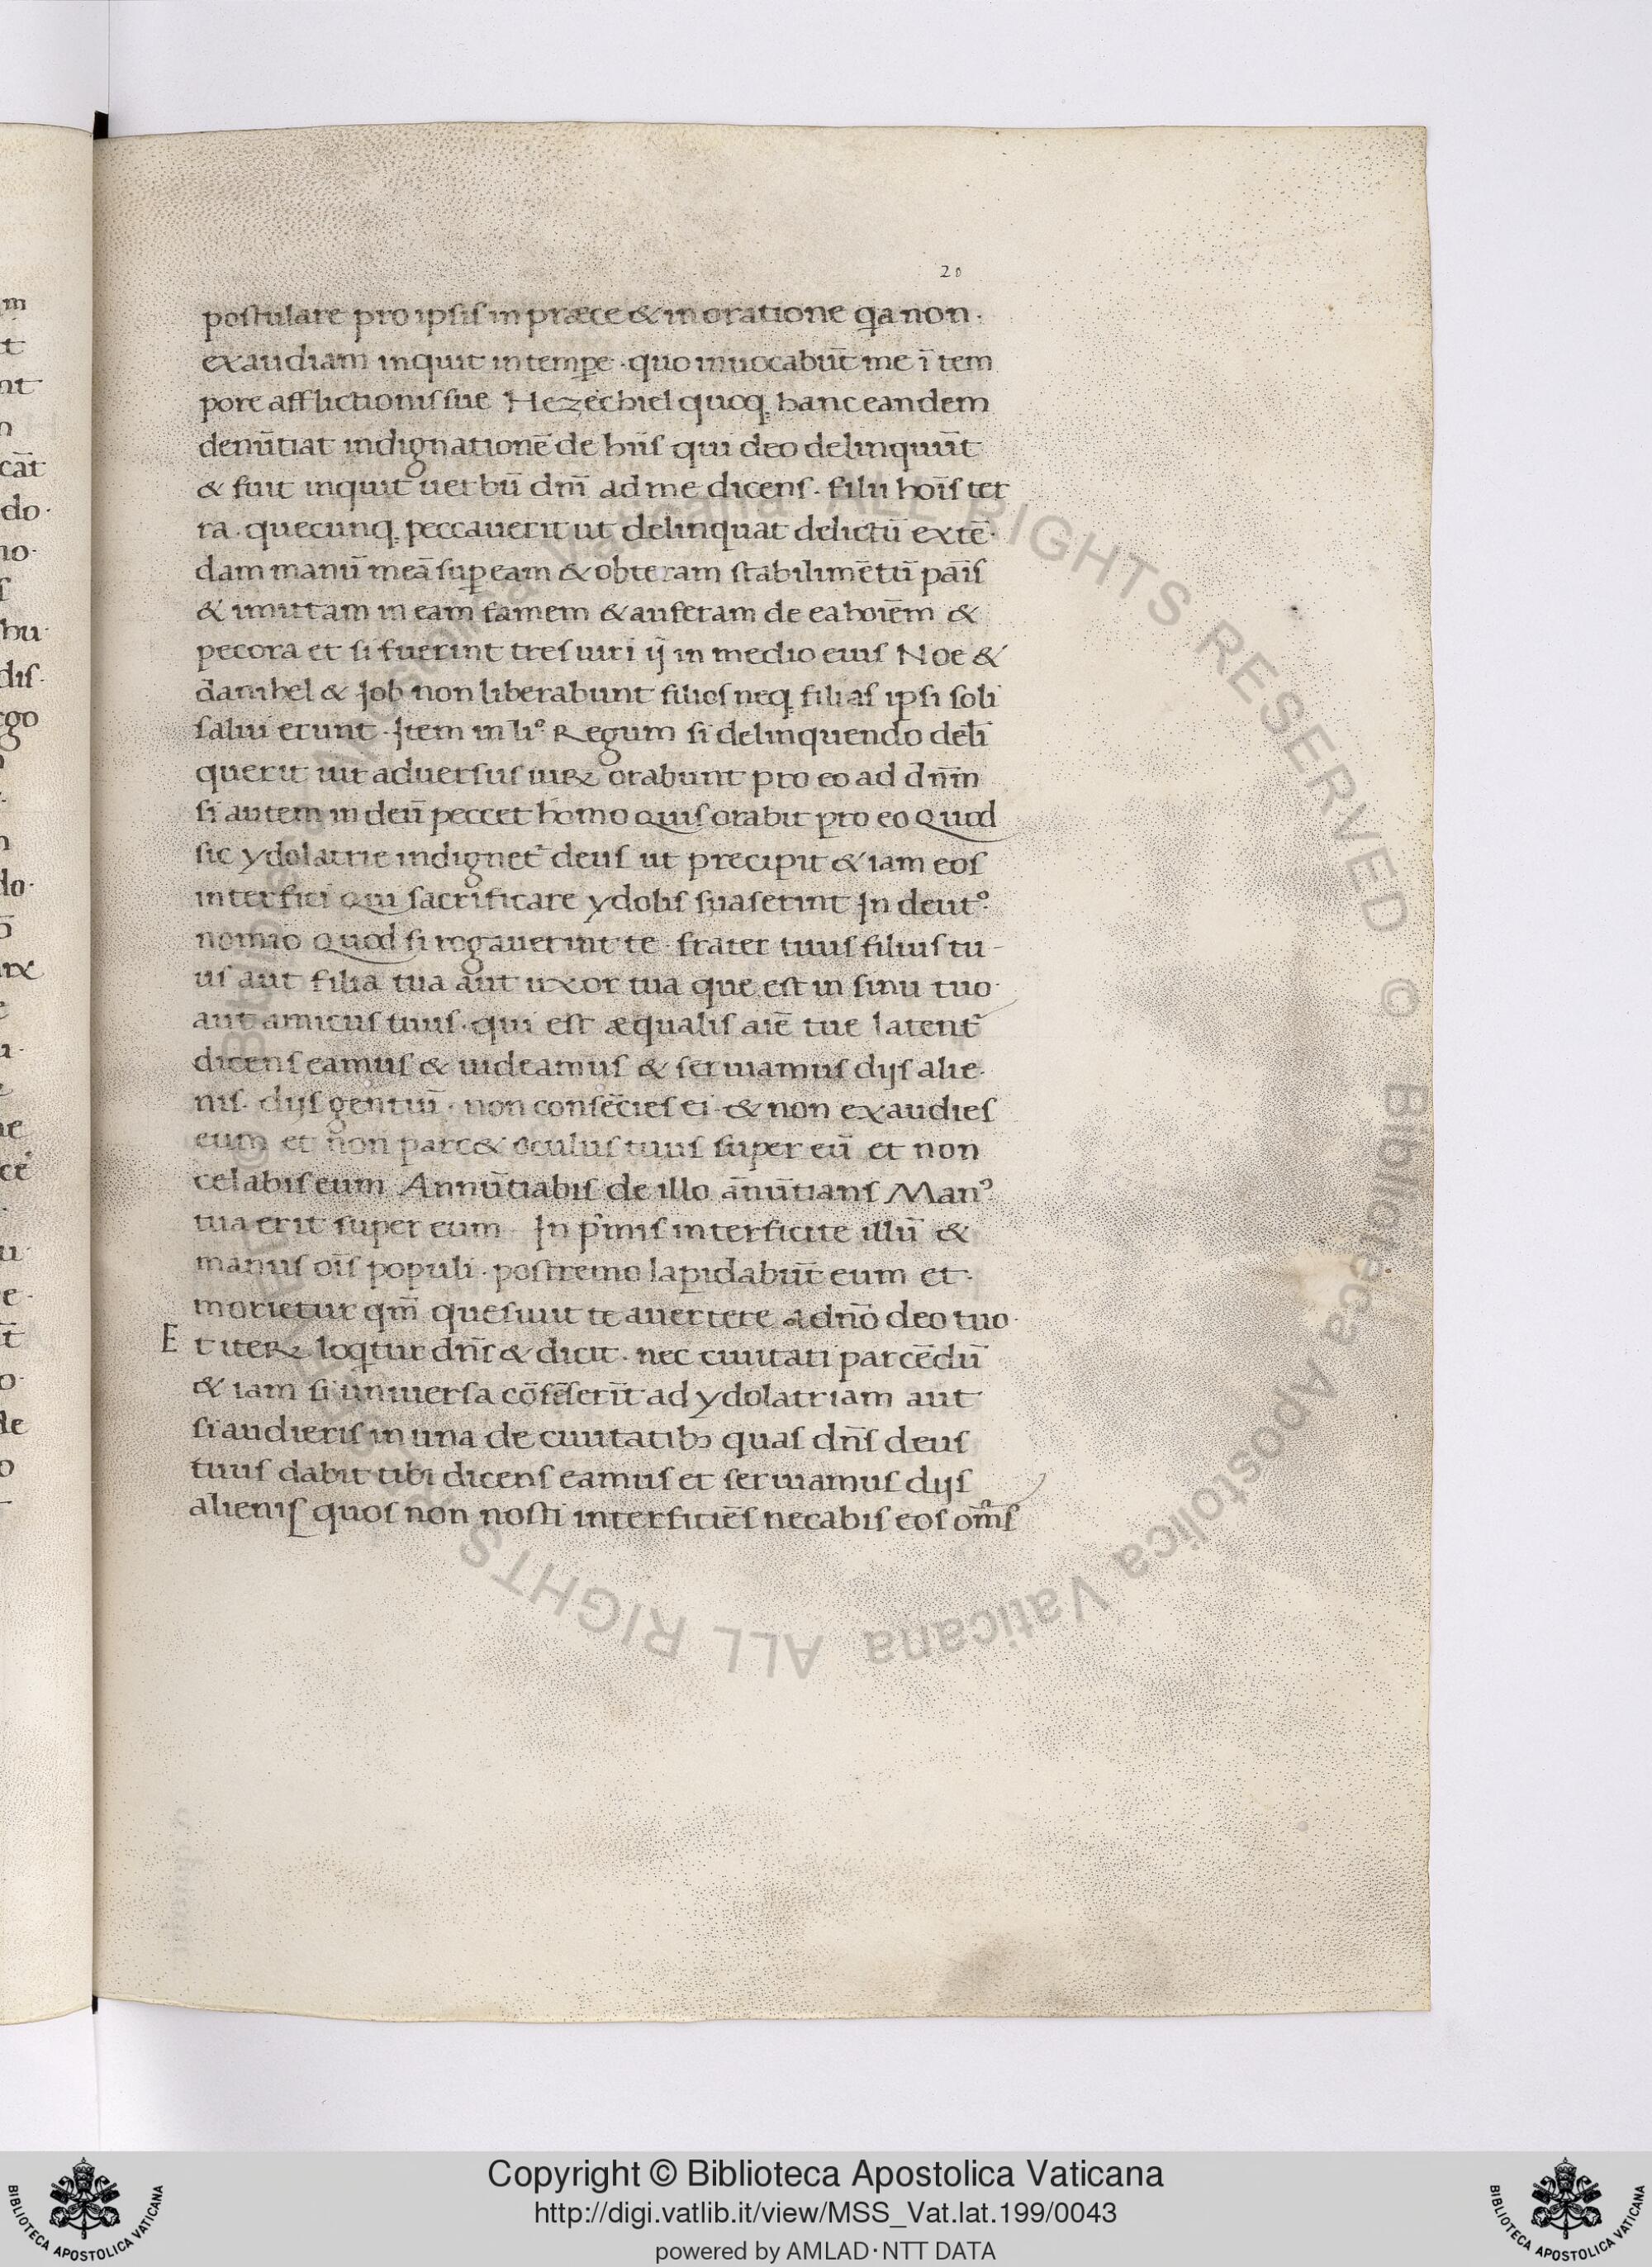 20
postulare pro ipsis in præce & in oratione q̄a non.
exaudiam inquit in tempe · quo inuocabūt me ī tem
pore afflictionis sue Hezechiel quoq; hanc eandem
denūtiat indignationē de hiis qui deo delinquūt
& fuit inquit uerbū dn̄i ad me dicens · filii hoīs ter
ra · quecunq; peccauerit ut delinquat delictū extē·
dam manū meā sup eam & obteram stabilimētū pāis
& imittam in eam famem & auferam de ea hoiēm &
pecora et si fuerint tres uiri ij in medio eius Noe &
danihel & Job non liberabunt filios neq; filias ipsi soli
salui erunt · Item in li° Regum si delinquendo deli
querit uir aduersus uiꝝ orabunt pro eo ad dn̄m
si autem in deū peccet homo quis orabit pro eo Quod
sic ydolatrie indignet̄ deus ut precipit & iam eos
interfici qui sacrificare ydolis suaserint In deut°·
nomio Quod si rogauerint te · frater tuus filius tu-
us aut filia tua aut uxor tua que est in sinu tuo·
aut amicus tuus · qui est æqualis aīe tue latent̄
dicens eamus & uideamus & seruiamus dijs alie·
nis · dijs gentiū · non conseties ei · & non exaudies
eum et non parc& oculus tuus super eū et non
celabis eum Annūtiabis de illo ānūtians Manꝰ
tua erit super eum In pimis interficite illū &
manus oīs populi · postremo lapidabūt eum et·
morietur qm̄ quesiuit te auertere a dn̄o deo tuo·
Et iteꝝ loqtur dn̄s & dicit · nec ciuitati parcēdū
& iam si uniuersa cōsēserīt ad ydolatriam aut
si audieris in una de ciuitatibꝫ quas dn̄s deus
tuus dabit tibi dicens eamus et seruiamus dijs
alienis quos non nosti interficiēs necabis eos om̄s
© Biblioteca Apostolica Vaticana ALL RIGHTS RESERVED © Biblioteca Apostolica Vaticana ALL RIGHTS
Copyright © Biblioteca Apostolica Vaticana
http://digi.vatlib.it/view/MSS_Vat.lat.199/0043
powered by AMLAD·NTT DATA
BIBLIOTECA APOSTOLICA VATICANA
BIBLIOTECA APOSTOLICA VATICANA